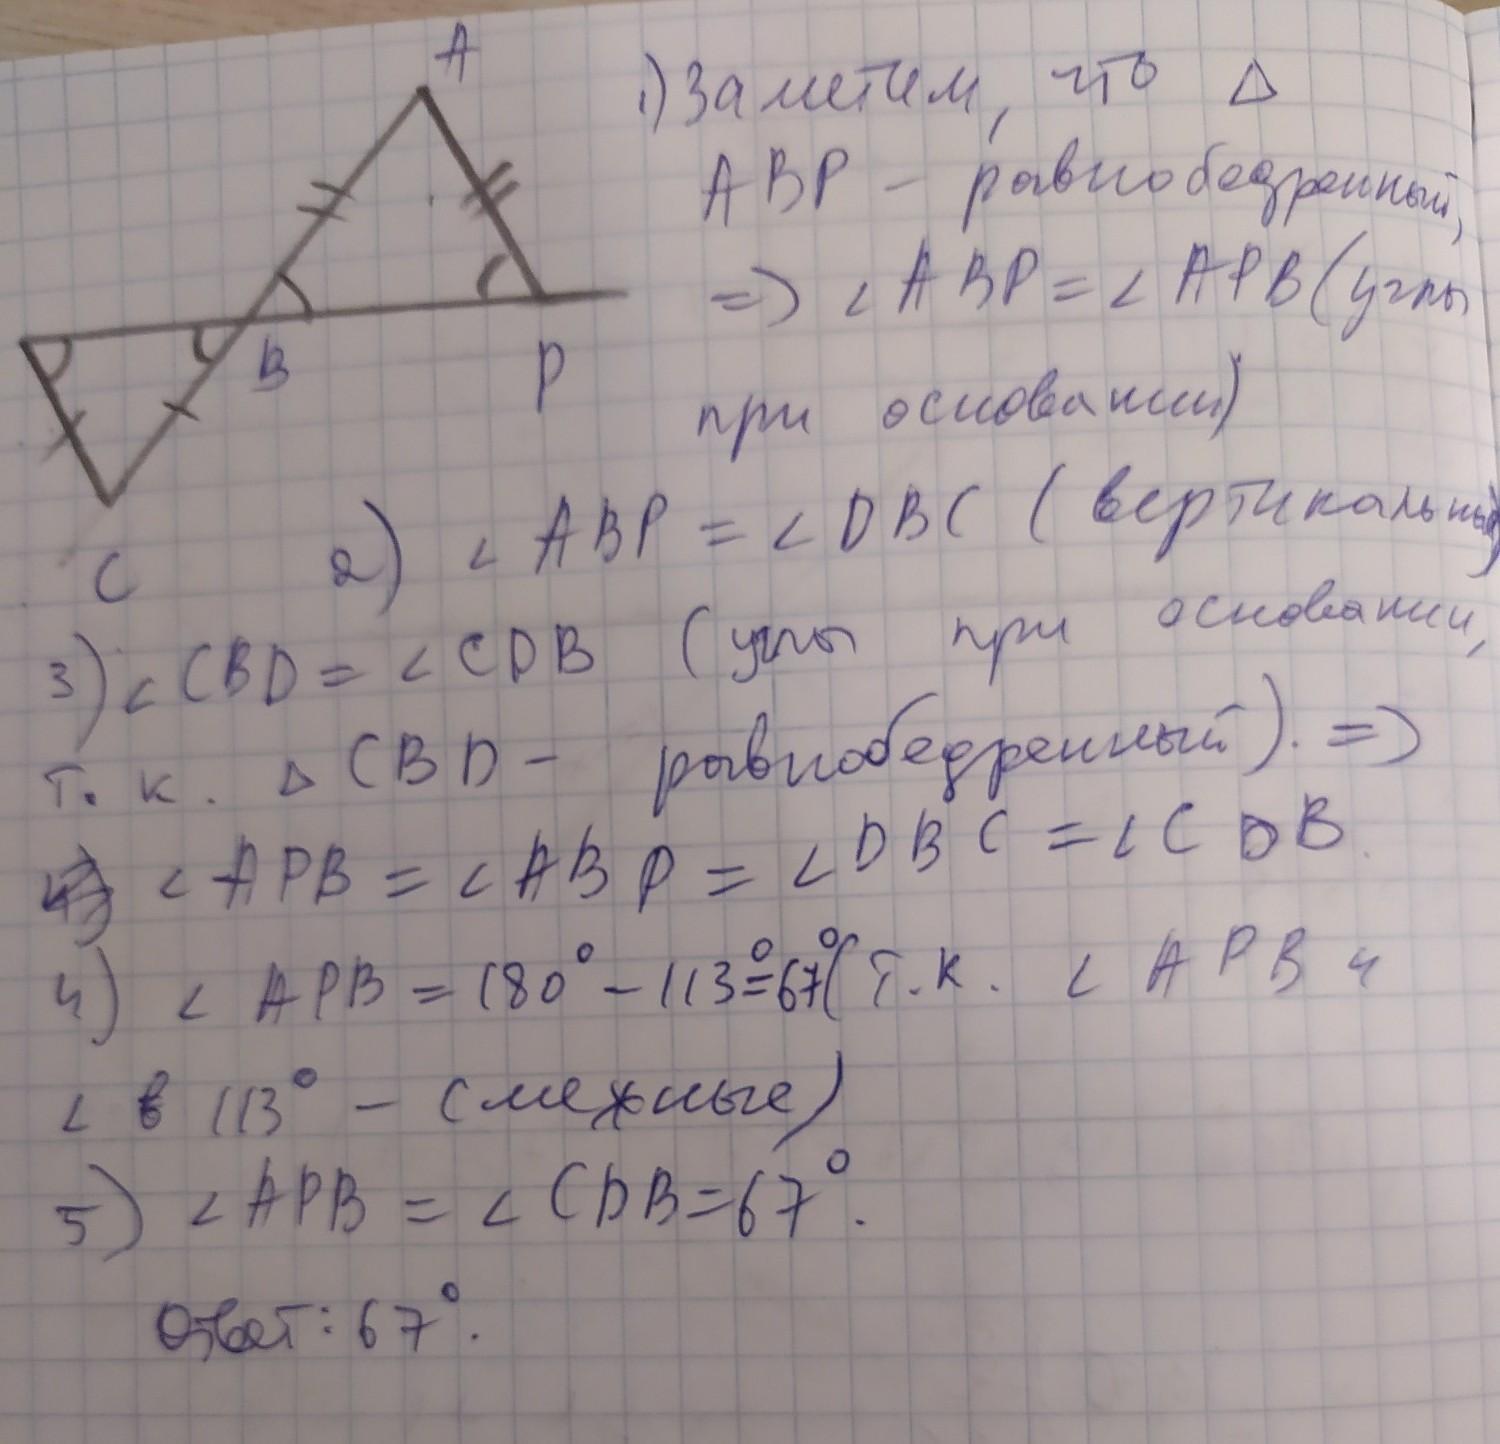 A
1) Заметим, что △
ABP - равнобедренный,
=> ∠ABP = ∠APB (углы
B
P
при основании)
C
2) ∠ABP = ∠DBC (вертикальные)
3) ∠CBD = ∠CDB (углы при основании,
т.к. △CBD - равнобедренный). =>
∠APB = ∠ABP = ∠DBC = ∠CDB.
4) ∠APB = 180° - 113° = 67° (т.к. ∠APB и
∠ в 113° - смежные)
5) ∠APB = ∠CDB = 67°.
Ответ: 67°.